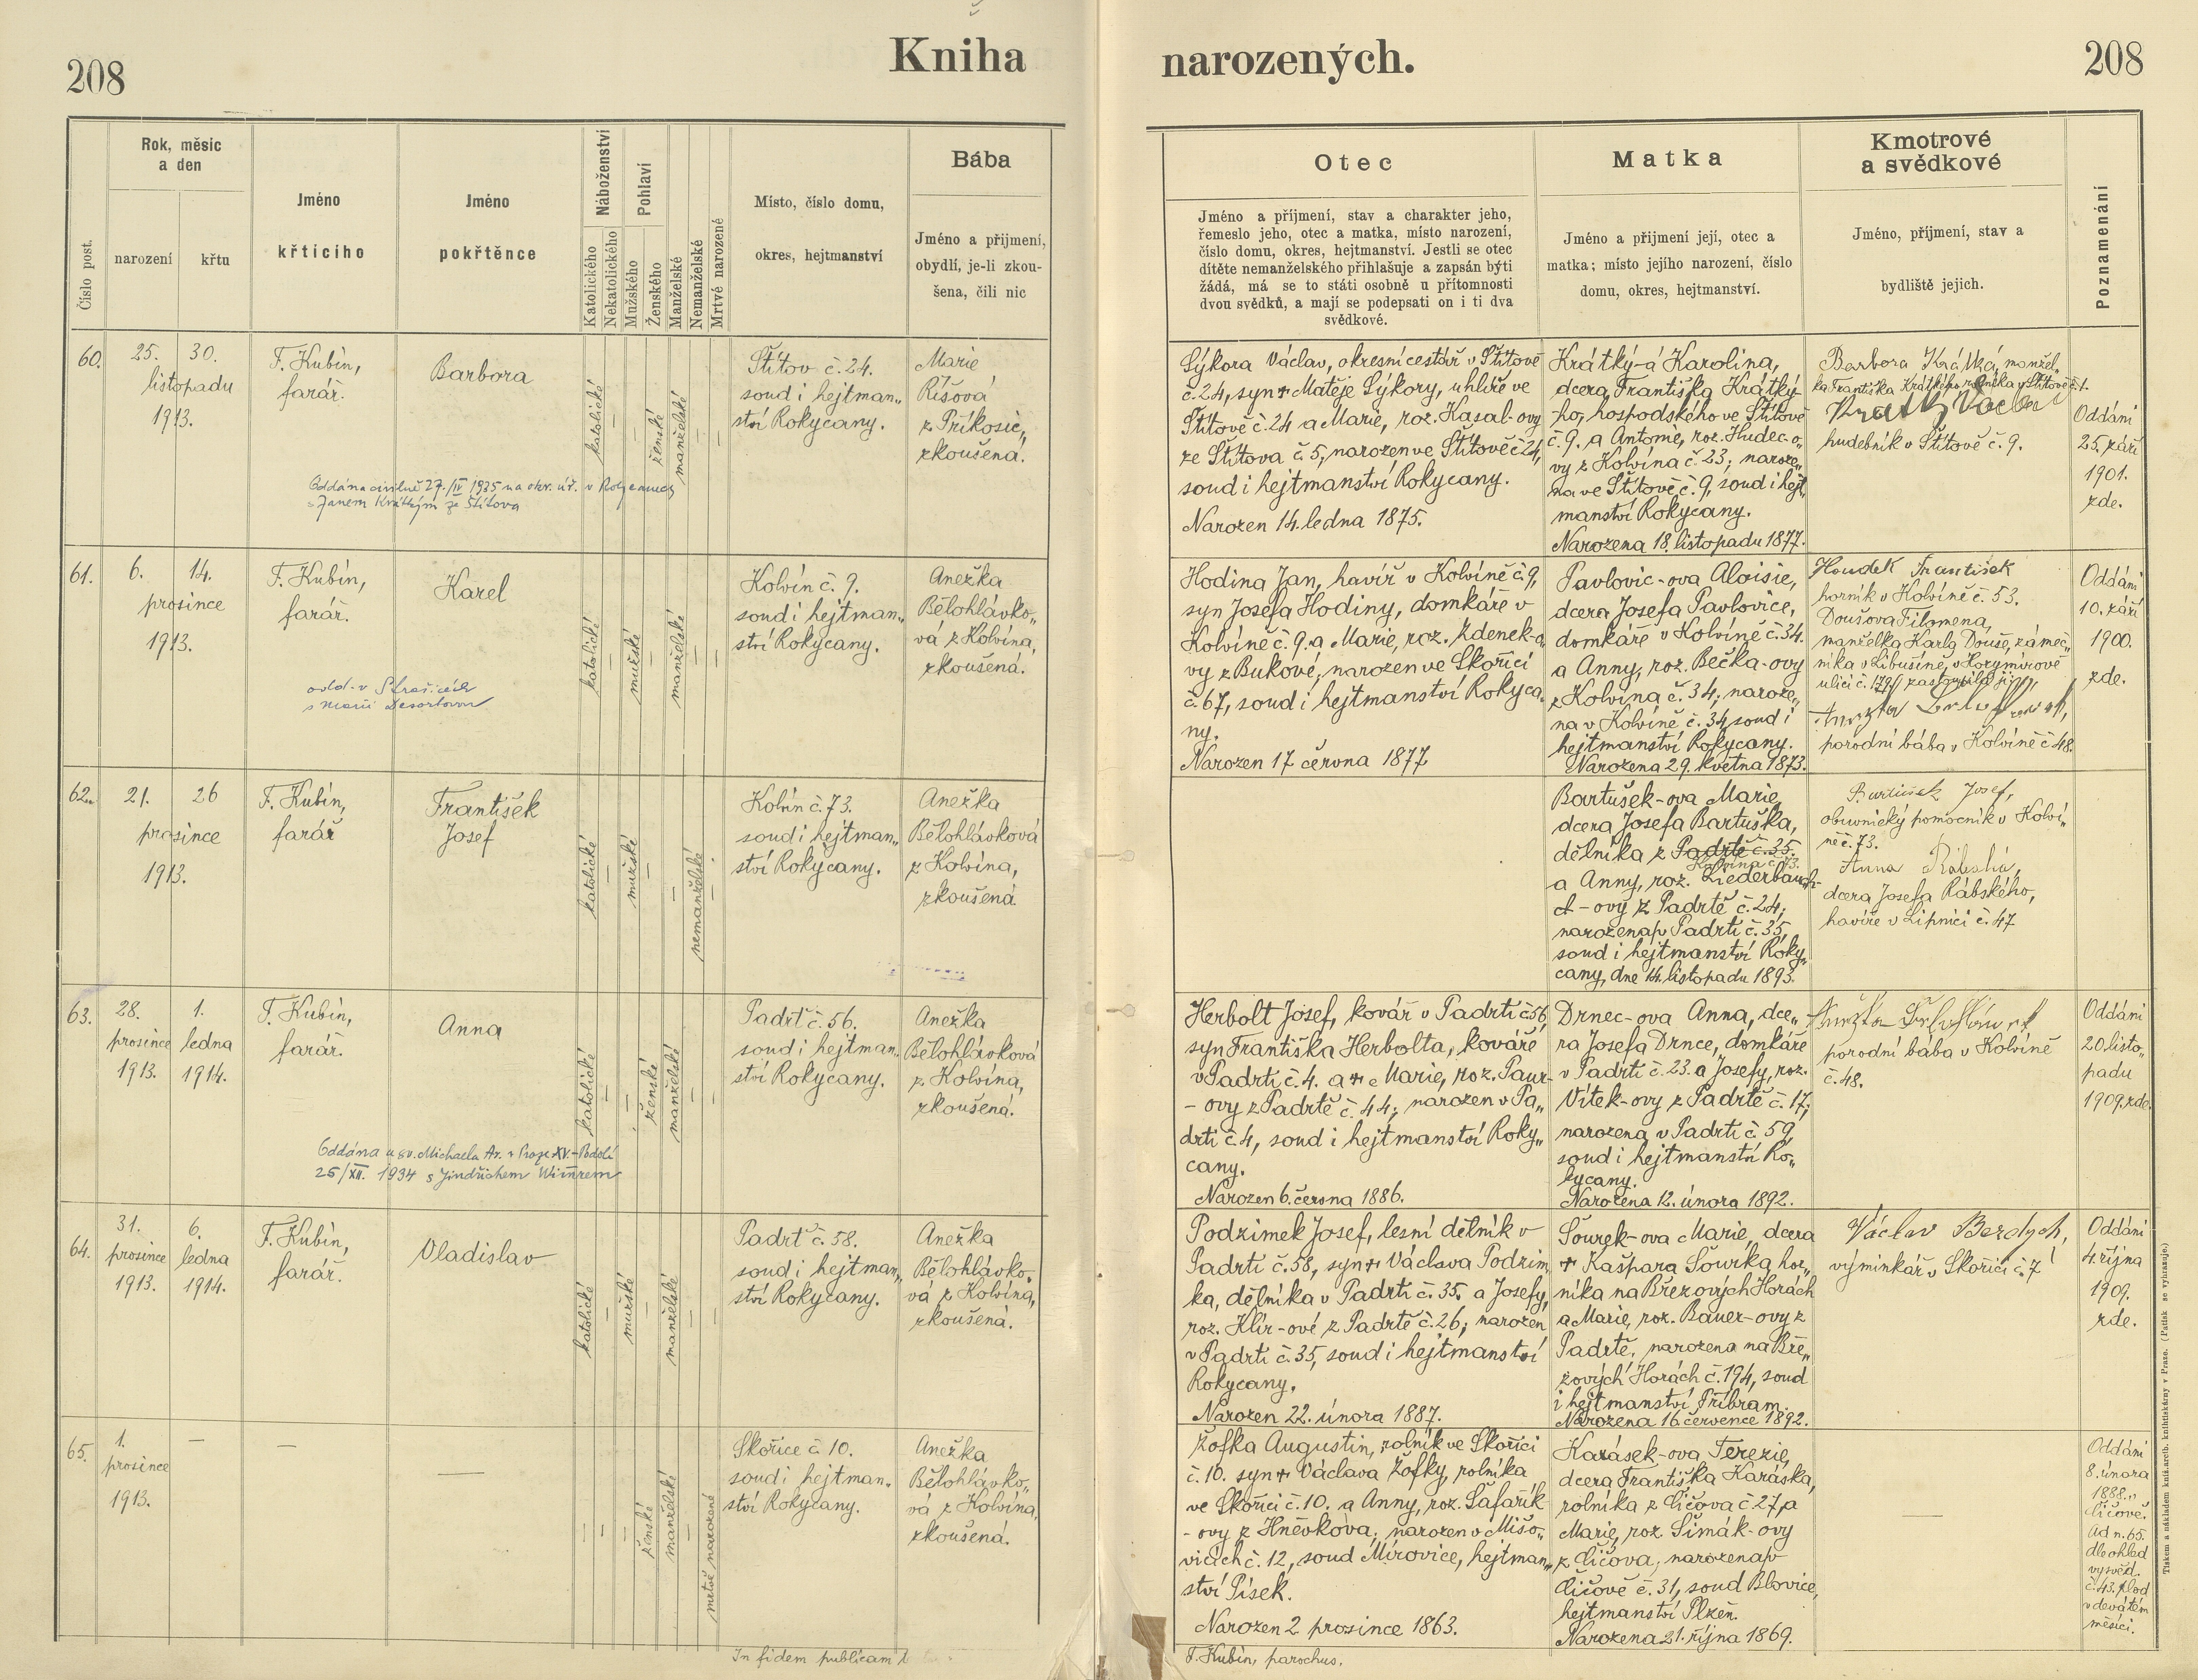 208
Kniha
narozených.
208
Číslo post.
Rok, měsíc
a den
narození
křtu
Jméno
křtícího
Jméno
pokřtěnce
Náboženství
Katolického
Nekatolického
Pohlaví
Mužského
Ženského
Manželské
Nemanželské
Mrtvé narozené
Místo, číslo domu,
okres, hejtmanství
Bába
Jméno a příjmení,
obydlí, je-li zkou-
šena, čili nic
Otec
Jméno a příjmení, stav a charakter jeho,
řemeslo jeho, otec a matka, místo narození,
číslo domu, okres, hejtmanství. Jestli se otec
dítěte nemanželského přihlašuje a zapsán býti
žádá, má se to státi osobně u přítomnosti
dvou svědků, a mají se podepsati on i ti dva
svědkové.
Matka
Jméno a příjmení její, otec a
matka; místo jejího narození, číslo
domu, okres, hejtmanství.
Kmotrové
a svědkové
Jméno, příjmení, stav a
bydliště jejich.
Poznamenání
60.
25.
30.
listopadu
1913.
F. Kubín,
farář.
Barbora
katolické
ženské
manželské
Štítov č. 24.
soud i hejtman„
ství Rokycany.
Marie
Říšová
z Příkosic,
zkoušená.
Oddána civilně 27./IV 1935 na okr. úř. v Rokycanech
s Janem Krátkým ze Štítova
Sýkora Václav, okresní cestář v Štítově
č. 24, syn + Matěje Sýkory, uhlíře ve
Štítově č. 24 a Marie, roz. Kasal-ovy
ze Štítova č. 5; narozen ve Štítově č. 24,
soud i hejtmanství Rokycany.
Narozen 14. ledna 1875.
Krátký-á Karolina,
dcera Františka Krátký-
ho, hospodského ve Štítově
č. 9. a Antonie, roz. Hudec-o„
vy z Kolvína č. 23; naroze„
na ve Štítově č. 9, soud i hejt„
manství Rokycany.
Narozena 18. listopadu 1877.
Barbora Krátká, manžel„
ka Františka Krátkého rolníka v Štítově č. 1.
Krátký Václav
hudebník v Štítově č. 9.
Oddáni
25. září
1901.
zde.
61.
6.
14.
prosince
1913.
F. Kubín,
farář.
Karel
katolické
mužské
manželské
Kolvín č. 9.
soud i hejtman„
ství Rokycany.
Anežka
Bělohlávko„
vá z Kolvína,
zkoušená.
odd. v Strašicích
s Marií Desortovou
Hodina Jan, havíř v Kolvíně č. 9,
syn Josefa Hodiny, domkáře v
Kolvíně č. 9. a Marie, roz. Zdenek-o
vy z Bukové; narozen ve Skořici
č. 67, soud i hejtmanství Rokyca„
ny.
Narozen 17 června 1877
Pavlovic-ova Aloisie,
dcera Josefa Pavlovice,
domkáře v Kolvíně č. 34.
a Anny, roz. Bečka-ovy
z Kolvína č. 34; naroze„
na v Kolvíně č. 34, soud i
hejtmanství Rokycany.
Narozena 29. května 1873.
Houdek František
horník v Kolvíně č. 53.
Doušova Filomena,
manželka Karla Douše, zámeč„
níka v Libušíně, v Horymírově
ulici č. 179, zastoupila ji,
porodní bába v Kolvíně č. 48.
Oddáni
10. září
1900.
zde.
62.
21.
26
prosince
1913.
F. Kubín,
farář
František
Josef
katolické
mužské
nemanželské
Kolvín č. 73.
soud i hejtman„
ství Rokycany.
Anežka
Bělohlávková
z Kolvína,
zkoušená
Bartušek-ova Marie,
dcera Josefa Bartuška,
dělníka z Padrtě č. 35.
Kolvína č. 73.
a Anny, roz. Liederbau
ch-ovy z Padrtě č. 24;
narozena v Padrti č. 35,
soud i hejtmanství Roky„
cany, dne 14. listopadu 1893.
Bartušek Josef,
obuvnický pomocník v Kolví„
ně č. 73.
Anna Rábská,
dcera Josefa Rábského,
havíře v Lipnici č. 47
63.
28.
1.
prosince
ledna
1913.
1914.
F. Kubín,
farář.
Anna
katolické
ženské
manželské
Padrť č. 56.
soud i hejtman„
ství Rokycany.
Anežka
Bělohlávková
z Kolvína,
zkoušená.
Oddána u sv. Michaela Ar. v Praze XV.-Podolí
25/XII. 1934 s Jindřichem
Herbolt Josef, kovář v Padrti č. 56,
syn Františka Herbolta, kováře
v Padrti č. 4. a + Marie, roz. Paur-
-ovy z Padrtě č. 44; narozen v Pa„
drti č. 4, soud i hejtmanství Roky„
cany.
Narozen 6. června 1886.
Drnec-ova Anna, dce„
ra Josefa Drnce, domkáře
v Padrti č. 23. a Josefy, roz.
Vítek-ovy z Padrtě č. 17;
narozena v Padrti č. 59,
soud i hejtmanství Ro„
kycany.
Narozena 12. února 1892.
porodní bába v Kolvíně
č. 48.
Oddáni
20. listo„
padu
1909. zde.
64.
31.
6.
prosince
ledna
1913.
1914.
F. Kubín,
farář.
Vladislav
katolické
mužské
manželské
Padrť č. 58.
soud i hejtman„
ství Rokycany.
Anežka
Bělohlávko„
vá z Kolvína,
zkoušená.
Podzimek Josef, lesní dělník v
Padrti č. 58, syn + Václava Podzim
ka, dělníka v Padrti č. 35. a Josefy,
roz. Klír-ové z Padrtě č. 26; narozen
v Padrti č. 35, soud i hejtmanství
Rokycany.
Narozen 22. února 1887.
Šourek-ova Marie, dcera
+ Kašpara Šourka, hor„
níka na Březových Horách
a Marie, roz. Bauer-ovy z
Padrtě, narozena na Bře„
zových Horách č. 194, soud
i hejtmanství Příbram.
Narozena 16 července 1892.
Václav Berdych,
výminkář v Skořici č. 7
Oddáni
4. října
1909.
zde.
65.
1.
prosince
1913.
—
—
—
ženské
manželské
mrtvě narozené
Skořice č. 10.
soud i hejtman„
ství Rokycany.
Anežka
Bělohlávko„
vá z Kolvína,
zkoušená.
Žofka Augustin, rolník ve Skořici
č. 10. syn + Václava Žofky, rolníka
ve Skořici č. 10. a Anny, roz. Šafařík
-ovy z Hněvkova; narozen v Mišo„
vicích č. 12, soud Mirovice, hejtman„
ství Písek.
Narozen 2. prosince 1863.
Karásek-ova Terezie,
dcera Františka Karáska,
rolníka z Číčova č. 27, a
Marie, roz. Šimák-ovy
z Číčova; narozena v
Číčově č. 31, soud Blovice,
hejtmanství Plzeň.
Narozena 21. října 1869.
—
Oddáni
8. února
1888.
Číčově.
Ad n. 65.
dle ohled
vysvěd.
č. 43. plod
v devátém
měsíci.
In fidem publicam
F. Kubín, parochus.
Tiskem a nákladem kníž. arcib. knihtiskárny v Praze. (Patisk se vyhrazuje.)